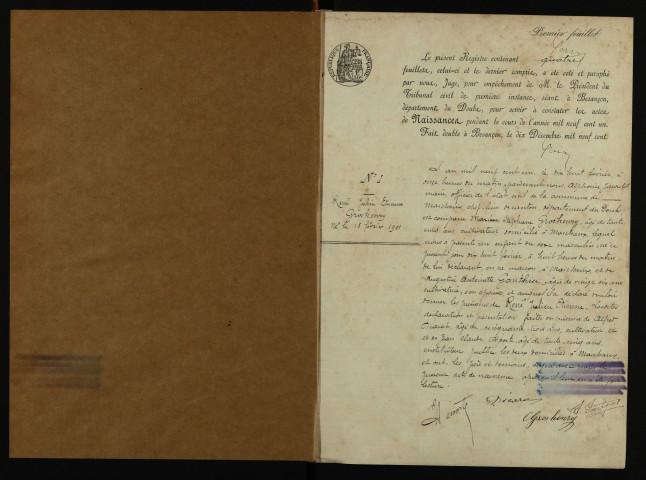 Premier feuillet
Le présent Registre contenant quatre
feuillets, celui-ci et le dernier compris, a été coté et paraphé
par nous, Juge, pour empêchement de M. le Président du
Tribunal civil de première instance, séant à Besançon,
département du Doubs, pour servir à constater les actes
de Naissances pendant le cours de l'année mil neuf cent un.
Fait double à Besançon, le dix Décembre mil neuf cent.
RÉPUBLIQUE FRANÇAISE
N° 1
René Julien Etienne
Groshenry
Né le 18 février 1901
L'an mil neuf cent un, le dix huit février, à
onze heures du matin, pardevant nous, Alphonse
maire, officier de l'état civil de la commune de
Marchaux, chef-lieu de canton, département du Doubs
est comparu Grosherry, âgé de trente
ans, cultivateur domicilié à Marchaux, lequel
nous a présenté un enfant du sexe masculin, né ce
présent jour dix huit février, à huit heures du matin
de lui déclarant, en sa maison à Marchaux, et de
Augustine Antoinette Gauthier, âgée de vingt six ans
cultivatrice, son épouse, et auquel il a déclaré vouloir
donner les prénoms de René Julien Etienne. Lesdites
déclaration et présentation faites en présence de Alfred
âgé de cinquante trois ans, cultivateur et
et de Jean Claude âgé de trente cinq ans
instituteur public, les deux domiciliés à Marchaux,
et ont les père et témoins, signé avec nous le
présent acte de naissance, après qu'il leur en a été fait
lecture.
Grosherry